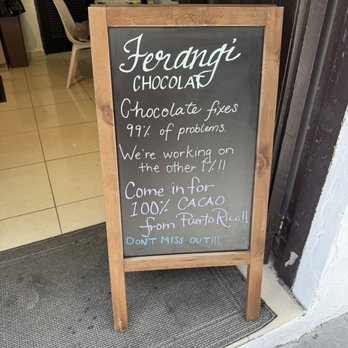 Ferangi
CHOCOLAT
Chocolate fixes
99% of problems.
We're working on
the other 1%!!
Come in for
100% CACAO
from Puerto Rico!!
DONT MISS OUT!!!